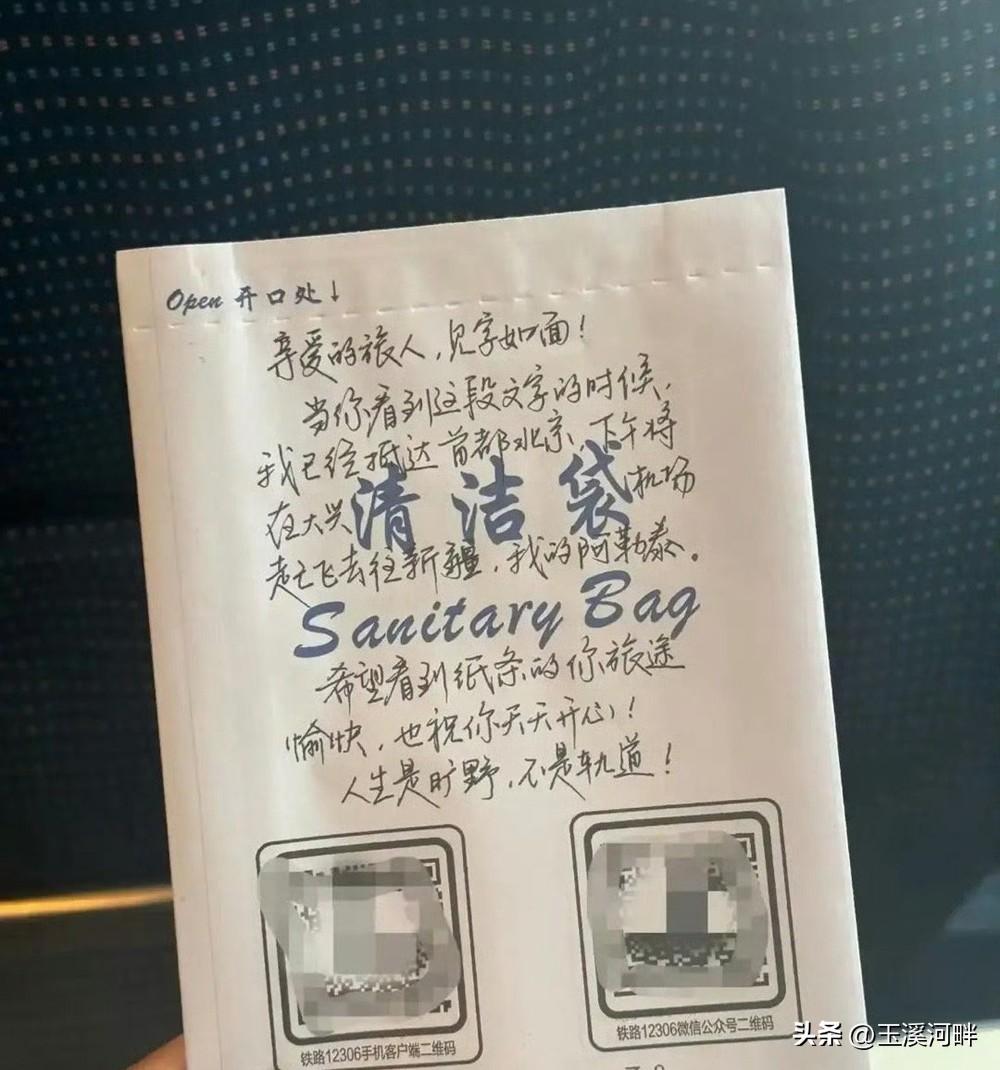 Open 开口处↓
亲爱的旅人，见字如面！
当你看到这段文字的时候，
我已经抵达首都北京，下午将
在大兴机场
清洁袋
起飞去往新疆，我的阿勒泰。
Sanitary Bag
希望看到纸条的你旅途
愉快，也祝你天天开心！
人生是旷野，不是轨道！
铁路12306手机客户端二维码
铁路12306微信公众号二维码
头条 @玉溪河畔